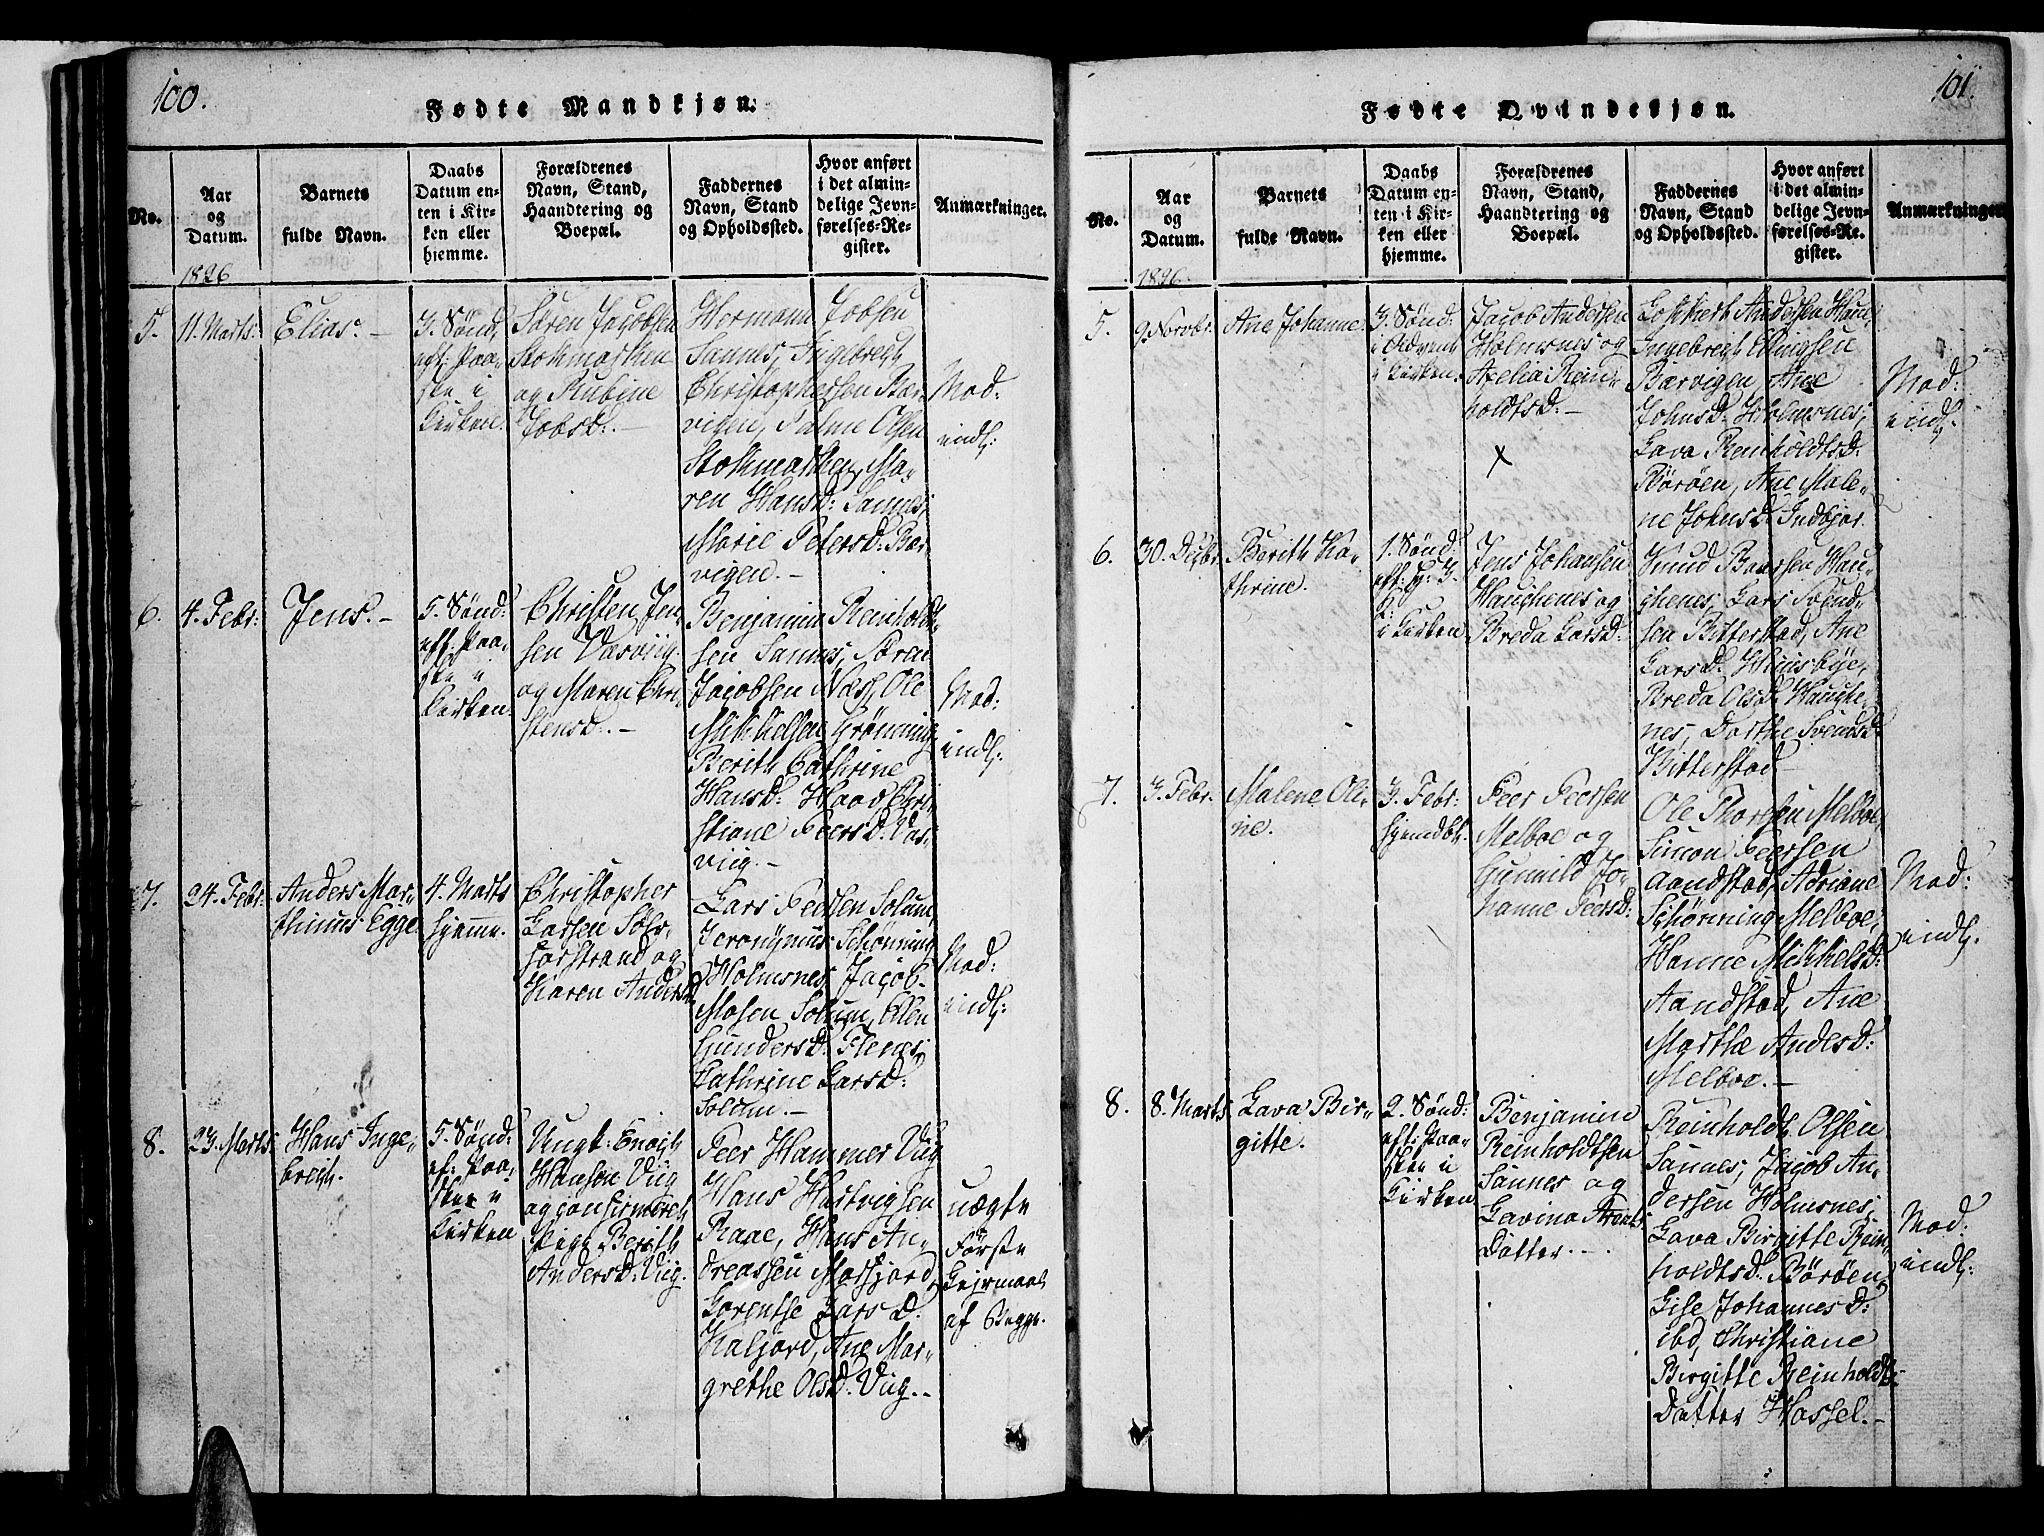 100.
Fødte Mandkjøn.
No.
Aar
og
Datum.
Barnets
fulde Navn.
Daabs
Datum en-
ten i Kir-
ken eller
hjemme.
Forældrenes
Navn, Stand,
Haandtering og
Boepæl.
Faddernes
Navn, Stand
og Opholdssted.
Hvor anført
i det almin-
delige Jevn-
førelses-Re-
gister.
Anmærkninger.
1826
5.
11. Marts.
Elias. –
3. Sønd.
eft: Paa-
ske i
Kirken.
Søren Jacobsen
Stokmarken
og Rubine
Jobsd. –
Hermann Jobsen
Sannes, Ingebregt
Christophersen Bar-
vigen, Palme Olsen
Stokmarken, Ma-
ren Hansd: Sannes,
Marie Petersd: Bar-
vigen. –
Mod:
indl:
6.
4. Febr:
Jens. –
5. Sønd:
eft: Paa-
ske i
Kirken.
Christen Jen-
sen Vasviig
og Maren Chri-
stensd. –
Benjamin Reinholdt-
sen Sannes, Søren
Jacobsen Næss, Ole
Mikkelsen Grønning
Berith Cathrine
Hansd: Haav, Chri-
stiane Peersd: Vas-
viig. –
Mod:
indl:
7.
24. Febr:
Anders Mar-
thinus Egge.
4. Marts
hjemme.
Christopher
Larsen
og
Karen Andersd
Lars Peersen Solum,
Jeronymus Schønning
Holmsnes, Jacob
Mosen Solum, Ellen
Gundersd: Flenes,
Cathrine Larsd:
Solum. –
Mod:
indl:
8.
23. Marts.
Hans Inge-
breigt.
5. Sønd:
ef: Paa-
ske i
Kirken
Ungk: Enoch
Hanson Viig
og confirmeret
Pige Berith
Andersd: Viig.
Peer Hammer Viig
Hans Hartvigsen
Raae, Hans An-
dreassen Melfjord,
Lorentse Larsd.
Kaljord, Ane Mar-
grethe Olsd: Viig. –
uægte
Første
Leiermaal
af Begge.
101.
Fødte Qvindekjøn.
No.
Aar
og
Datum.
Barnets
fulde Navn.
Daabs
Datum en-
ten i Kir-
ken eller
hjemme.
Forældrenes
Navn, Stand,
Haandtering og
Boepæl.
Faddernes
Navn, Stand
og Opholdssted.
Hvor anført
i det almin-
delige Jevn-
førelses-Re-
gister.
Anmærkninger.
1826.
5.
9. Novbr.
Ane Johanne.
3. Sønd:
i Advent
i Kirken.
Jacob Andersen
Holmsnes og
Axelia Rein-
holdtsd: –
x
Andersen
Ingebregt Ellingsen
Barvigen, Ane
Johnsd: Holmsnes,
Lava Reinholdtsd:
Børøen, Ane Male-
ne Johnsd: Indbjor.
Mod:
indl:
6.
30. Decbr.
Berith Ka-
thrine.
1. Sønd:
eft: H: 3
K:
i Kirken.
Jens Johansen
Haukenes og
Breda Larsd:
Knud Baarsen Hau-
kenes, Lars Svend-
sen Bitterstad, Ane
Larsd:
Breda Olsd: Hauke-
nes, Dorthe Svendsd:
Bitterstad –
7.
3. Febr.
Malene Oli-
ne.
3. Febr:
hjemdbt.
Peer Peersen
Melboe og
Gunnild Jo-
hanne Peersd:
Ole Thorsen Melboe,
Simon Peersen
Aandstad, Adriane
Schønning Melboe,
Hanne Mikkelsd:
Aandstad, Ane
Marthe Andesd:
Melboe. –
Mod:
indl:
8.
8. Marts
Lava Bir-
gitte.
2. Sønd:
eft: Paa-
ske i
Kirken
Benjamin
Reinholdtsen
Sannes og
Lavina Arents
Datter. –
Reinholdt Olsen
Sannes, Jacob An-
dersen Holmsnes,
Lava Birgitte Rein-
holdtsd: Børøen,
Lise Johannesd:
ibd, Christiane
Birgitte Reinholdts
Datter Hassel. –
Mod:
indl: